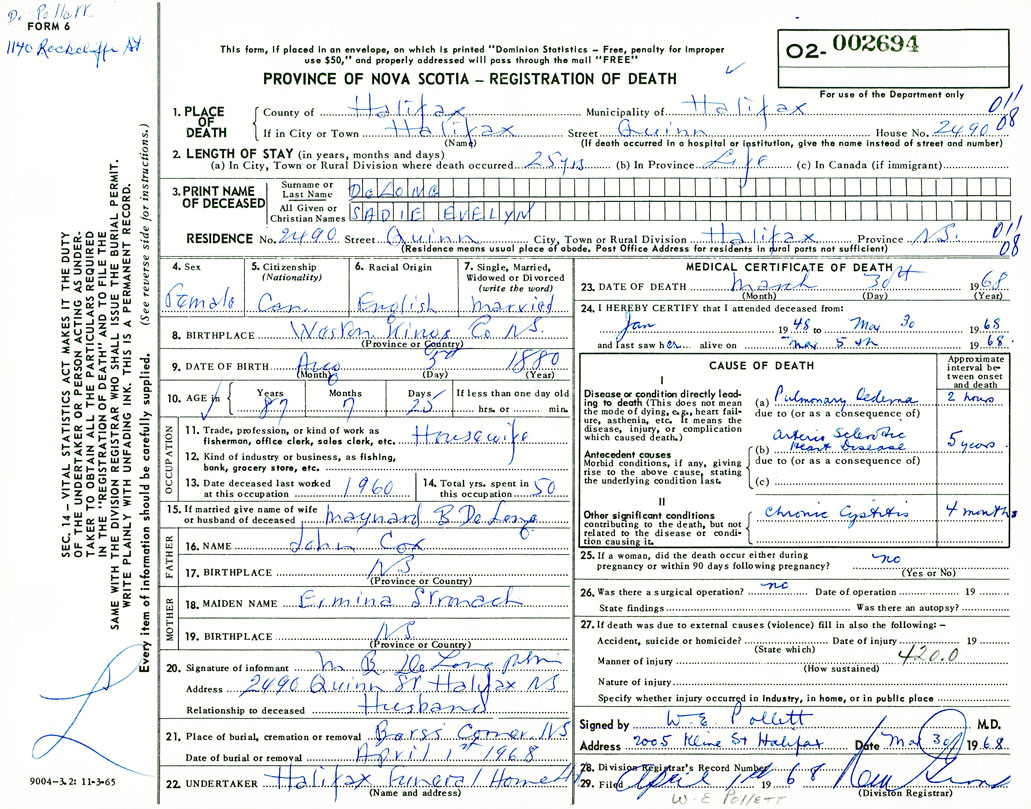 D. Pollett
FORM 6
1140 Rockcliffe St
This form, if placed in an envelope, on which is printed "Dominion Statistics – Free, penalty for improper
use $50," and properly addressed will pass through the mail "FREE"
O2- 002694
For use of the Department only
PROVINCE OF NOVA SCOTIA – REGISTRATION OF DEATH
011
08
1. PLACE OF DEATH
County of Halifax Municipality of Halifax
If in City or Town Halifax Street Quinn House No. 2490
(Name) (If death occurred in a hospital or institution, give the name instead of street and number)
2. LENGTH OF STAY (in years, months and days)
(a) In City, Town or Rural Division where death occurred 25 yrs (b) In Province Life (c) In Canada (if immigrant)
3. PRINT NAME OF DECEASED
Surname or Last Name DeLONG
All Given or Christian Names SADIE EVELYN
RESIDENCE No. 2490 Street Quinn City, Town or Rural Division Halifax Province N.S.
(Residence means usual place of abode. Post Office Address for residents in rural parts not sufficient)
011
08
4. Sex Female
5. Citizenship (Nationality) Can.
6. Racial Origin English
7. Single, Married, Widowed or Divorced (write the word) Married
8. BIRTHPLACE Weston Kings Co N.S.
(Province or Country)
9. DATE OF BIRTH Aug 3rd 1880
(Month) (Day) (Year)
10. AGE in Years 87 Months 7 Days 25 If less than one day old hrs. or min.
OCCUPATION
11. Trade, profession, or kind of work as fisherman, office clerk, sales clerk, etc. Housewife
12. Kind of industry or business, as fishing, bank, grocery store, etc.
13. Date deceased last worked at this occupation 1960
14. Total yrs. spent in this occupation 50
15. If married give name of wife or husband of deceased Maynard B De Long
FATHER
16. NAME John Cox
17. BIRTHPLACE N.S.
(Province or Country)
MOTHER
18. MAIDEN NAME Ermina Stronach
19. BIRTHPLACE N.S.
(Province or Country)
20. Signature of informant M B De Long
Address 2490 Quinn St Halifax NS
Relationship to deceased Husband
21. Place of burial, cremation or removal Barss Corner, NS
Date of burial or removal April 1st 1968
22. UNDERTAKER Halifax Funeral Home
(Name and address)
MEDICAL CERTIFICATE OF DEATH
23. DATE OF DEATH March 30th 1968
(Month) (Day) (Year)
24. I HEREBY CERTIFY that I attended deceased from:
Jan 1948 to Mar 30 1968
and last saw her alive on Mar 5th 1968
CAUSE OF DEATH
Approximate interval between onset and death
I
Disease or condition directly leading to death (This does not mean the mode of dying, e.g., heart failure, asthenia, etc. It means the disease, injury, or complication which caused death.)
(a) Pulmonary Oedema 2 hours
due to (or as a consequence of)
Antecedent causes
Morbid conditions, if any, giving rise to the above cause, stating the underlying condition last.
(b) Arterio Sclerotic Heart Disease 5 years
due to (or as a consequence of)
(c)
II
Other significant conditions contributing to the death, but not related to the disease or condition causing it.
Chronic Cystitis 4 months
25. If a woman, did the death occur either during pregnancy or within 90 days following pregnancy? no
(Yes or No)
26. Was there a surgical operation? no Date of operation 19
State findings Was there an autopsy?
27. If death was due to external causes (violence) fill in also the following: –
Accident, suicide or homicide? Date of injury 19
(State which)
420.0
Manner of injury
(How sustained)
Nature of injury
Specify whether injury occurred in industry, in home, or in public place
Signed by W. E. Pollett M.D.
Address 2005 Kline St Halifax Date Mar 30 1968
28. Division Registrar's Record Number
29. Filed April 1st 1968
(Division Registrar)
W. E. POLLETT
SEC. 14 – VITAL STATISTICS ACT MAKES IT THE DUTY
OF THE UNDERTAKER OR PERSON ACTING AS UNDER-
TAKER TO OBTAIN ALL THE PARTICULARS REQUIRED
IN THE "REGISTRATION OF DEATH" AND TO FILE THE
SAME WITH THE DIVISION REGISTRAR WHO SHALL ISSUE THE BURIAL PERMIT.
WRITE PLAINLY WITH UNFADING INK. THIS IS A PERMANENT RECORD.
Every item of information should be carefully supplied. (See reverse side for instructions.)
9004–3.2: 11-3-65